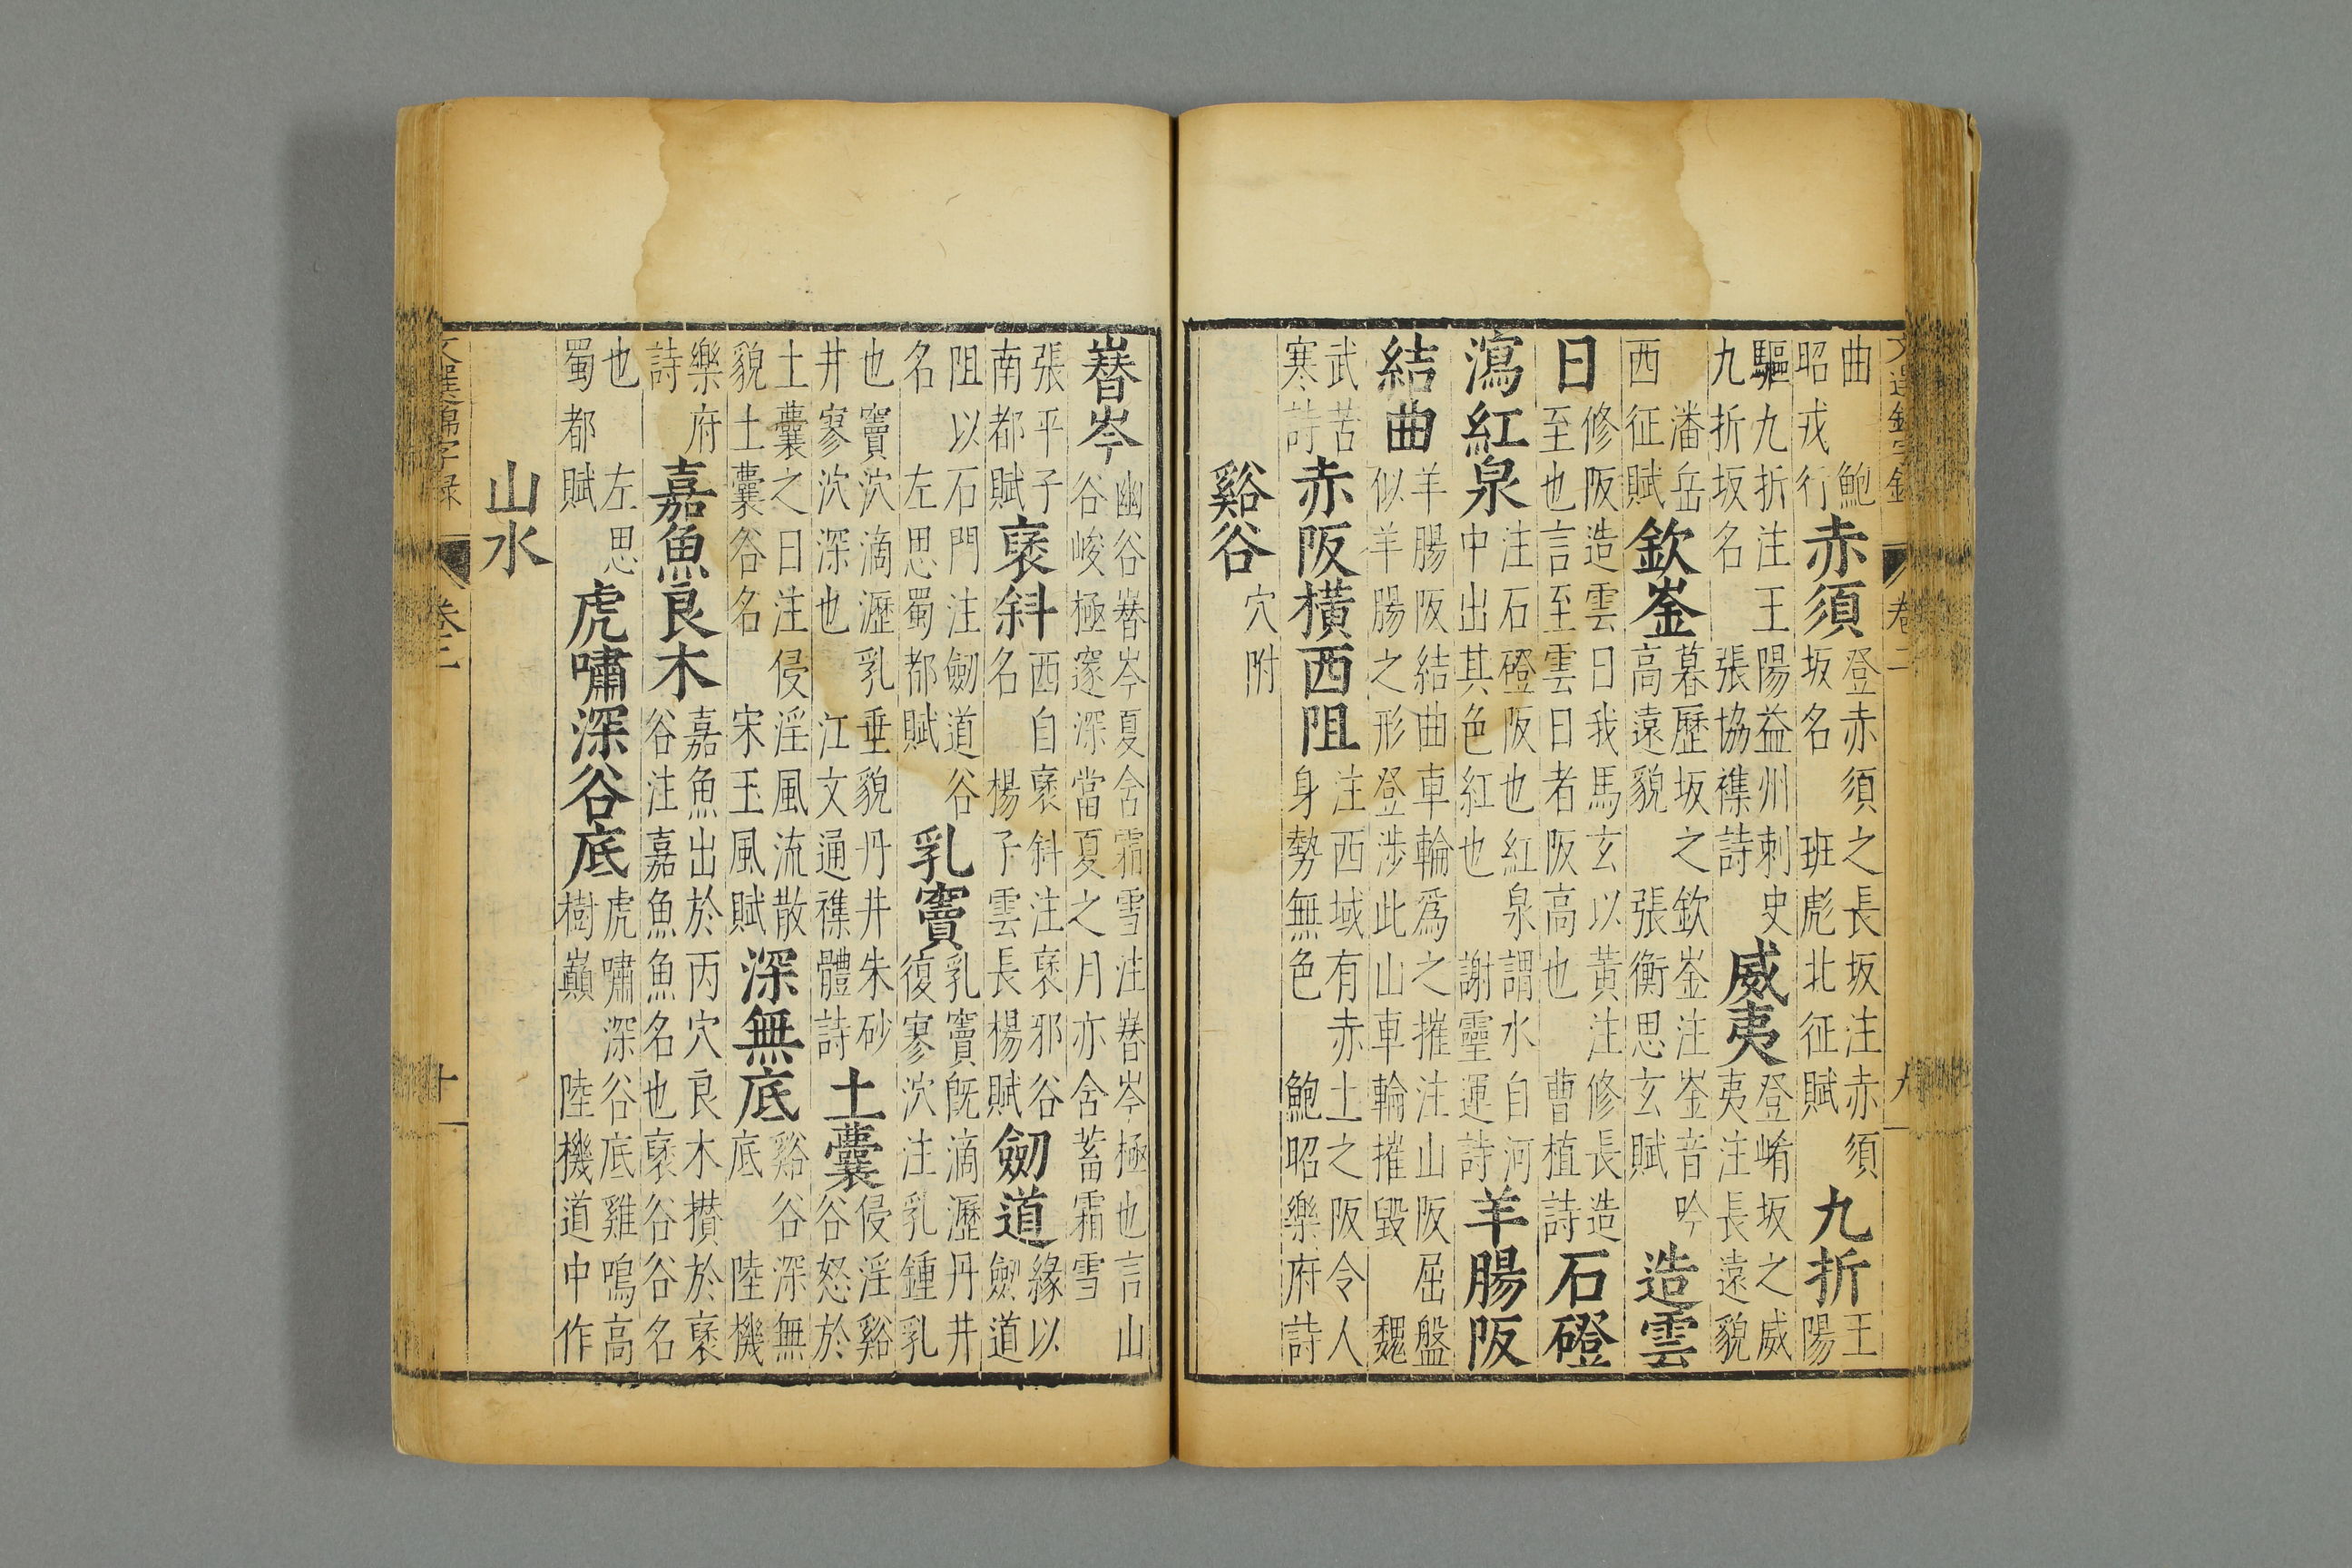 文選錦字錄 卷二 九
曲 鮑
昭戎行
赤須
登赤須之長坂注赤須
坂名 班彪北征賦
九折
王
陽
驅九折注王陽益州刺史
九折坂名 張協襍詩
威夷
登崤坂之威
夷注長遠貌
潘岳
西征賦
欽崟
暮歷坂之欽崟注崟音吟
高遠貌 張衡思玄賦
造雲
日
修阪造雲日我馬玄以黃注修長造
至也言至雲日者阪高也 曹植詩
石磴
瀉紅泉
注石磴阪也紅泉謂水自河
中出其色紅也 謝靈運詩
羊腸阪
結曲
羊腸阪結曲車輪爲之摧注山阪屈盤
似羊腸之形登涉此山車輪摧毀 魏
武苦
寒詩
赤阪橫西阻
注西域有赤土之阪令人
身勢無色 鮑昭樂府詩
谿谷
穴附
嶜岑
幽谷嶜岑夏含霜雪注嶜岑極也言山
谷峻極邃深當夏之月亦含蓄霜雪
張平子
南都賦
裦斜
西自裦斜注裦邪谷
名 楊子雲長楊賦
劒道
緣以
劒道
阻以石門注劒道谷
名 左思蜀都賦
乳竇
乳竇旣滴瀝丹井
復寥泬注乳鍾乳
也竇泬滴瀝乳垂貌丹井朱砂
井寥泬深也 江文通襍體詩
土囊
侵淫谿
谷怒於
土囊之口注侵淫風流散
貌土囊谷名 宋玉風賦
深無底
谿谷深無
底 陸機
樂府
詩
嘉魚良木
嘉魚出於丙穴良木攅於裦
谷注嘉魚魚名也裦谷谷名
也 左思
蜀都賦
虎嘯深谷底
虎嘯深谷底雞鳴高
樹巔 陸機道中作
山水
文選錦字錄 卷二 十